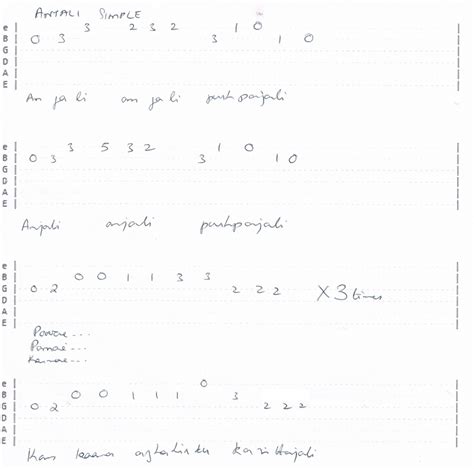 ANJALI SIMPLE
e 3 2 3 2 1 0
B 0 3 3 1 0
G
D
A
E
An ja li an ja li pushpanjali
e 3 5 3 2 1 0
B 0 3 3 1 0
G
D
A
E
Anjali anjali pushpanjali
e
B 0 0 1 1 3 3
G 0 2 2 2 2 X 3 times
D
A
E
e 0
B 0 0 1 1 1 3
G 0 2 2 2 2
D
A
E